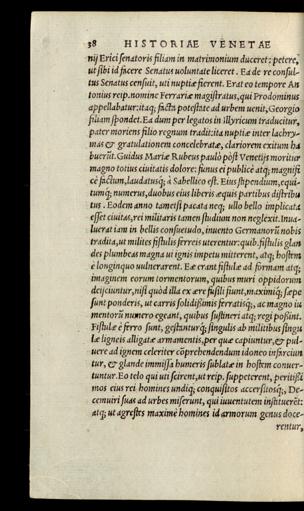 38 HISTORIAE VENETAE
nij Erici senatoris filiam in matrimonium duceret: petere,
ut sibi id facere Senatus uoluntate liceret. Ea de re consul-
tus Senatus censuit, uti nuptiæ fierent. Erat eo tempore An
tonius reip. nomine Ferrariæ magistratus, qui Prodominus
appellabatur: itaq; facta potestate ad urbem uenit, Georgio
filiam spondet. Ea dum per legatos in Illyricum traducitur,
pater moriens filio regnum tradit: ita nuptiæ inter lachry-
mas & gratulationem concelebratæ, clariorem exitum ha
buerūt. Guidus Mariæ Rubeus paulò pòst Venetijs moritur
magno totius ciuitatis dolore: funus ei publicè atq; magnifi
cè factum, laudatusq; à Sabellico est. Eius stipendium, equi-
tumq; numerus, duobus eius liberis æquis partibus distribu
tus. Eodem anno tametsi pacata neq; ullo bello implicata
esset ciuitas, rei militaris tamen studium non neglexit. Inua-
luerat iam in bellis consuetudo, inuento Germanorū nobis
tradita, ut milites fistulis ferreis uterentur: quib. fistulis glan
des plumbeas magna ui ignis impetu mitterent, atq; hostem
è longinquo uulnerarent. Eæ erant fistulæ ad formam atq;
imaginem eorum tormentorum, quibus muri oppidorum
deijciuntur, nisi quòd illa ex ære fusili fiunt, maximiq; sæpe
sunt ponderis, ut carris solidissimis ferratisq;, ac magno iu
mentorū numero egeant, quibus sustineri atq; regi possint.
Fistulæ è ferro sunt, gestanturq; singulis ab militibus singu
læ ligneis alligatæ armamentis, per quæ capiuntur, & pul-
uere ad ignem celeriter cōprehendendum idoneo infarciun
tur, & glande immissa humeris sublatæ in hostem conuer-
tuntur. Eo telo qui uti scirent, ut reip. suppeterent, peritissi
mos eius rei homines undiq; conquisitos accersitosq;, De-
cemuiri suas ad urbes miserunt, qui iuuentutem instituerēt:
atq; ut agrestes maximè homines id armorum genus doce-
rentur,